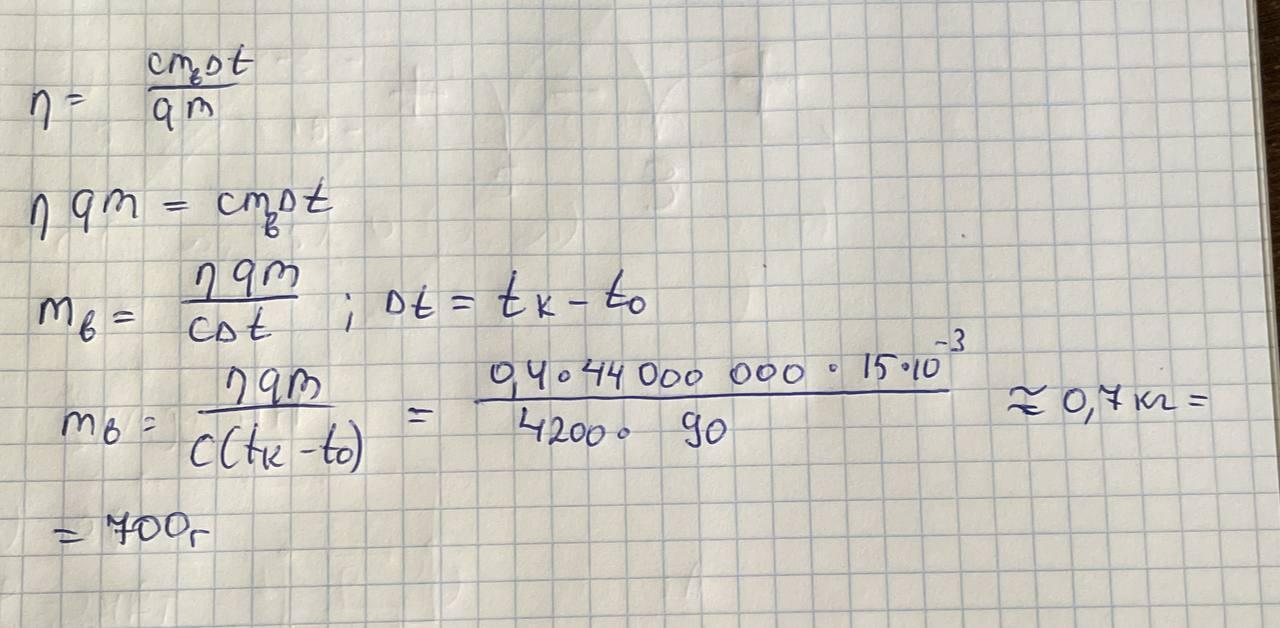 η = cm_вΔt / qm
ηqm = cm_вΔt
m_в = ηqm / cΔt ; Δt = t_к - t_0
m_в = ηqm / c(t_к - t_0) = 0,4∘44 000 000 · 15·10^-3 / 4200∘ 90 ≈ 0,7 кг =
= 700г